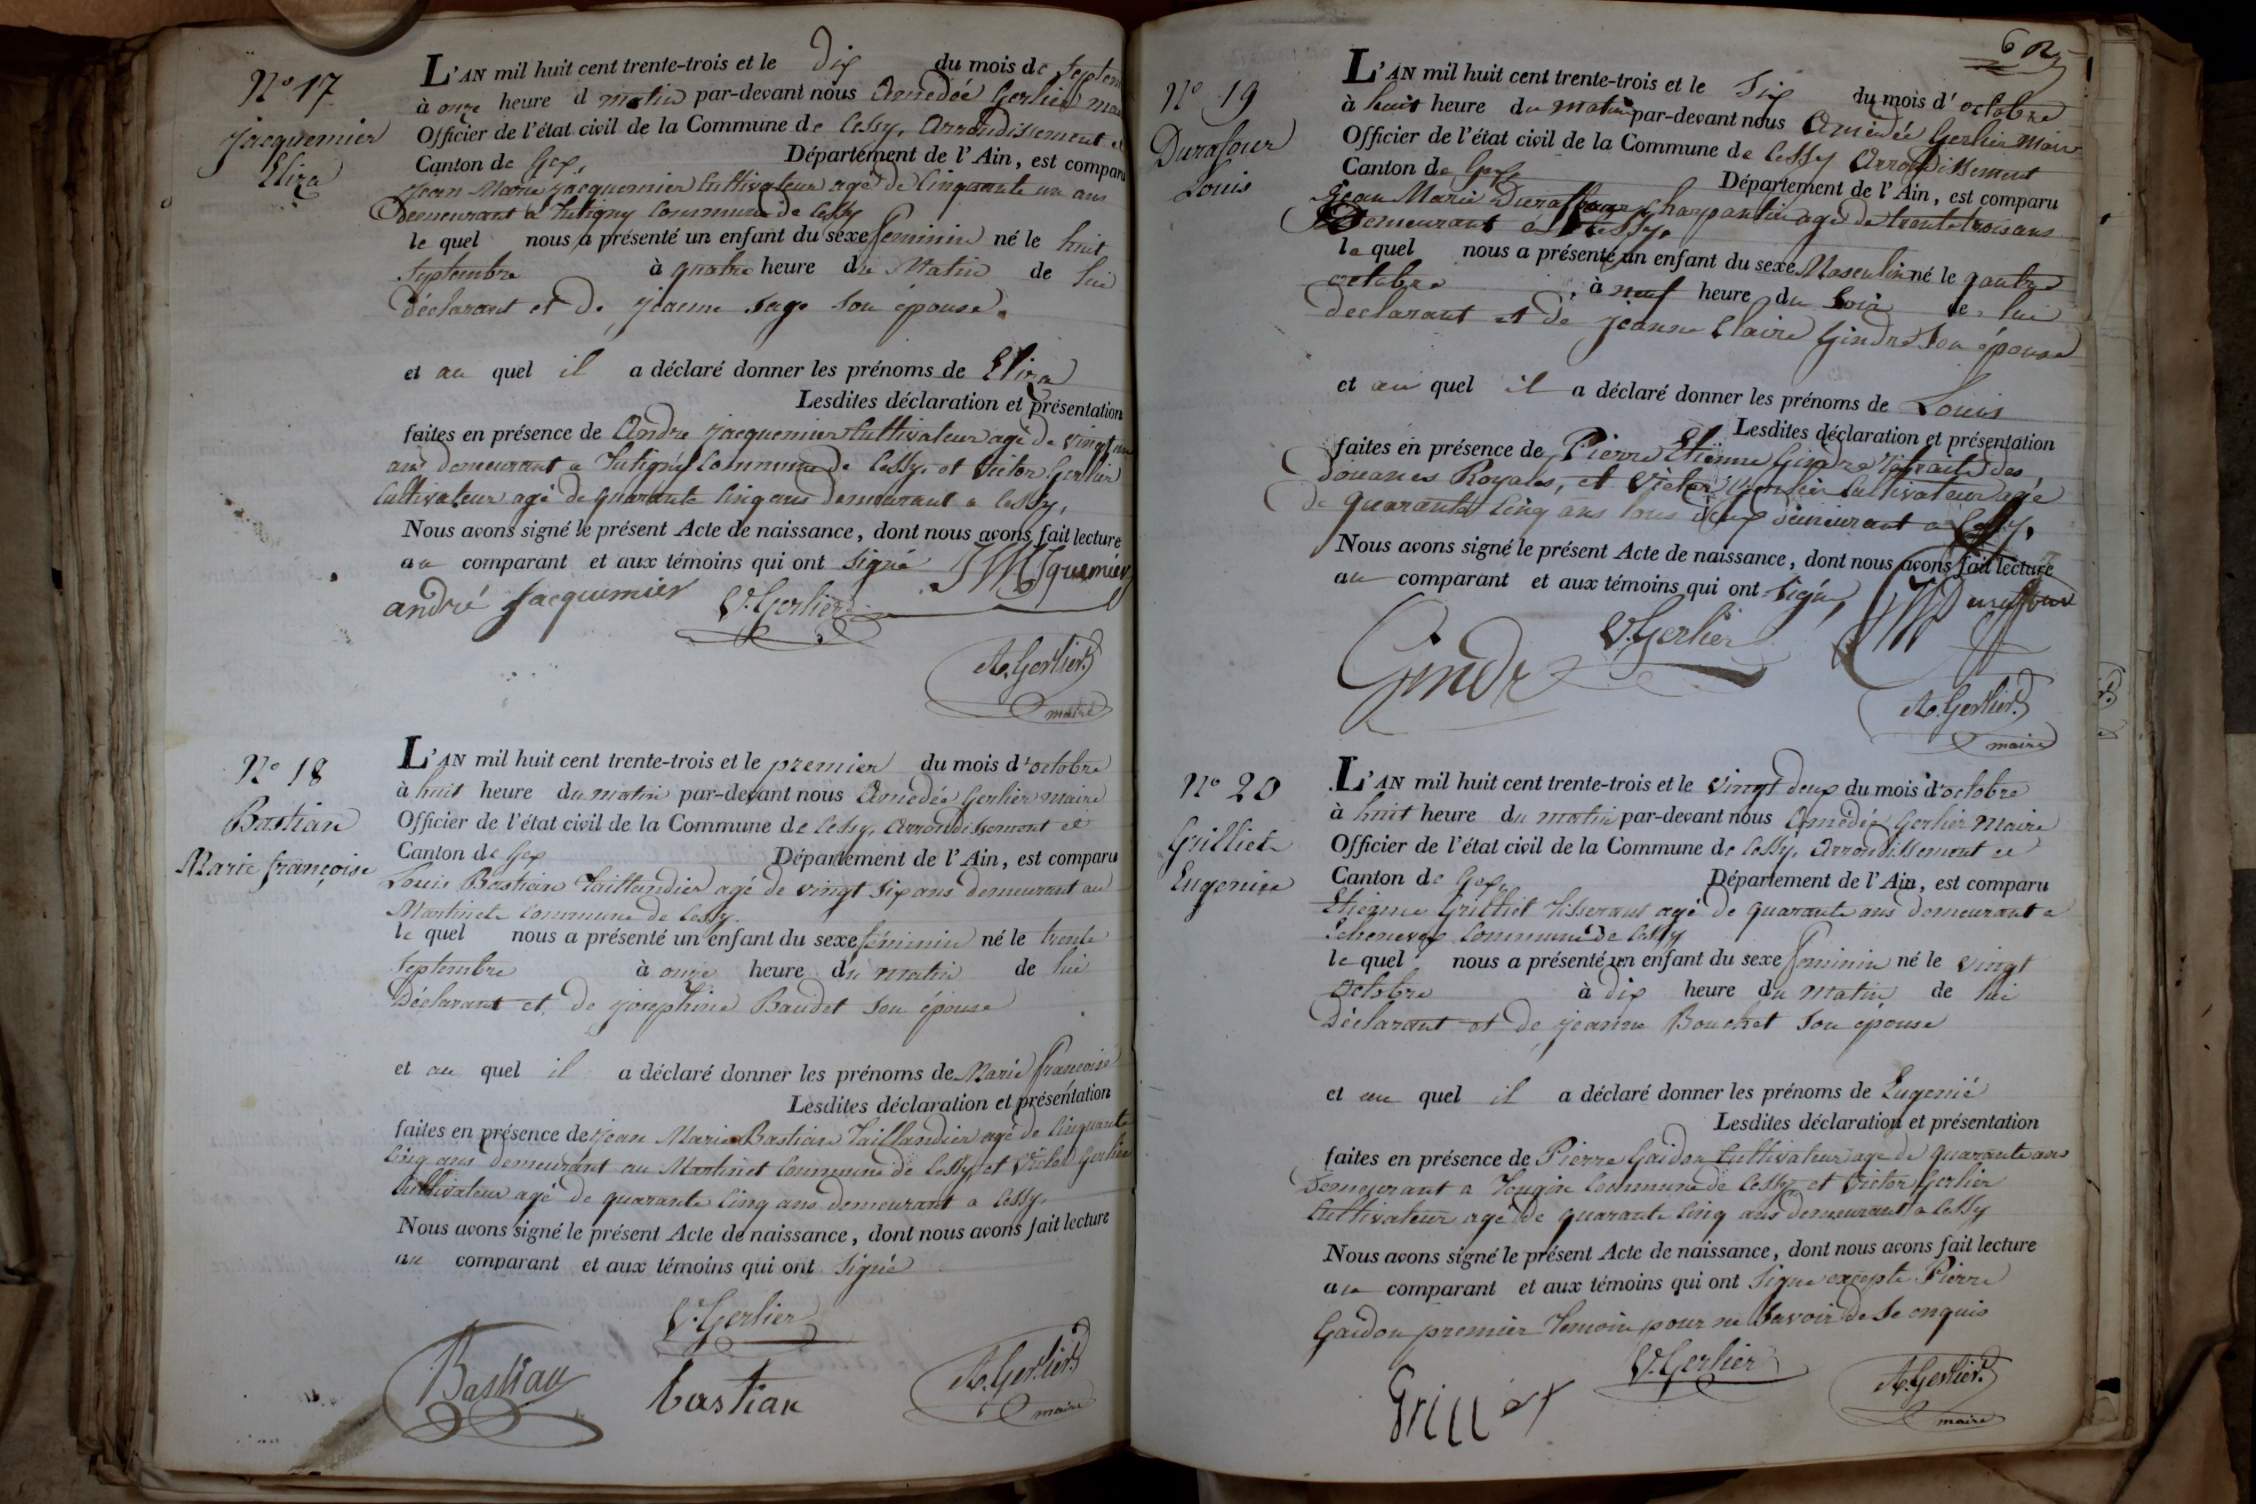 No 17
Jacquemier
Eliza
L'AN mil huit cent trente-trois et le dix du mois de septem
à onze heure d matin par-devant nous Amedée Gerlier mai
Officier de l'état civil de la Commune de Cessy, Arrondissement et
Canton de Gex, Département de l'Ain, est comparu
Jean Marie Jacquemier Cultivateur agé de Cinquante un ans
Demeurant a Tutigny Commune de Cessy
le quel nous a présenté un enfant du sexe feminin né le huit
Septembre à quatre heure du Matin de lui
déclarant et de jeanne Sage son épouse.
et au quel il a déclaré donner les prénoms de Eliza
Lesdites déclaration et présentation
faites en présence de Andre Jacquemier Cultivateur agé de vingt un
ans demeurant a Tutigny Commune de Cessy, et Victor Gerlier
Cultivateur agé de quarante Cinq ans demeurant a Cessy,
Nous avons signé le présent Acte de naissance, dont nous avons fait lecture
au comparant et aux témoins qui ont signé JM Jquemier
andré Jacquemier V. Gerlier
A. Gerlier
maire
No 18
Bastian
Marie françoise
L'AN mil huit cent trente-trois et le premier du mois d'octobre
à huit heure du matin par-devant nous Amedée Gerlier maire
Officier de l'état civil de la Commune de Cessy, Arrondissement et
Canton de Gex Département de l'Ain, est comparu
Louis Bastian Taillandier agé de vingt six ans demeurant au
Martinet Commune de Cessy.
le quel nous a présenté un enfant du sexe féminin né le trente
Septembre à onze heure du matin de lui
Déclarant et de josephine Baudet son épouse
et au quel il a déclaré donner les prénoms de Marie françoise
Lesdites déclaration et présentation
faites en présence de jean Marie Bastian Taillandier agé de Cinquante
Cinq ans demeurant au Martinet Commune de Cessy, et Victor Gerlier
Cultivateur agé de quarante Cinq ans demeurant a Cessy.
Nous avons signé le présent Acte de naissance, dont nous avons fait lecture
au comparant et aux témoins qui ont signé
V. Gerlier
Bastian bastian A. Gerlier
maire
62
No 19
Durafour
Louis
L'AN mil huit cent trente-trois et le Six du mois d'octobre
à huit heure du matin par-devant nous Amédée Gerlier Maire
Officier de l'état civil de la Commune de Cessy Arrondissement
Canton de Gex Département de l'Ain, est comparu
Jean Marie Durafour Charpantier agé de trente trois ans
Demeurant a Cessy,
le quel nous a présenté un enfant du sexe Masculin né le quatre
octobre, à neuf heure du Soir de lui
declarant et de jeanne Claire Gindre son épouse
et au quel il a déclaré donner les prénoms de Louis
Lesdites déclaration et présentation
faites en présence de Pierre Etienne Gindre retraité des
Douanes Royales, et Victor Gerlier Cultivateur agé
de quarante Cinq ans tous deux demeurant a Cessy.
Nous avons signé le présent Acte de naissance, dont nous avons fait lecture
au comparant et aux témoins qui ont signé, JM Durafour
Gindre V. Gerlier
A. Gerlier
maire
No 20
Grilliet
Eugenie
L'AN mil huit cent trente-trois et le vingt deux du mois d'octobre
à huit heure du matin par-devant nous Amedée Gerlier Maire
Officier de l'état civil de la Commune de Cessy, Arrondissement et
Canton de Gex, Département de l'Ain, est comparu
Etienne Grilliet Tisserant agé de quarante ans demeurant a
Commune de Cessy
le quel nous a présenté un enfant du sexe feminin né le vingt
Octobre à dix heure du matin de lui
Déclarant et de jeanne Bouchet son épouse
et au quel il a déclaré donner les prénoms de Eugenié
Lesdites déclaration et présentation
faites en présence de Pierre Gaidon Cultivateur agé de quarante ans
Demeurant a Tougin Commune de Cessy, et Victor Gerlier
Cultivateur agé de quarante Cinq ans demeurant a Cessy
Nous avons signé le présent Acte de naissance, dont nous avons fait lecture
au comparant et aux témoins qui ont signe excepte Pierre
Gaidon premier temoin pour ne savoir de ce enquis
Grilliet V. Gerlier A. Gerlier
maire